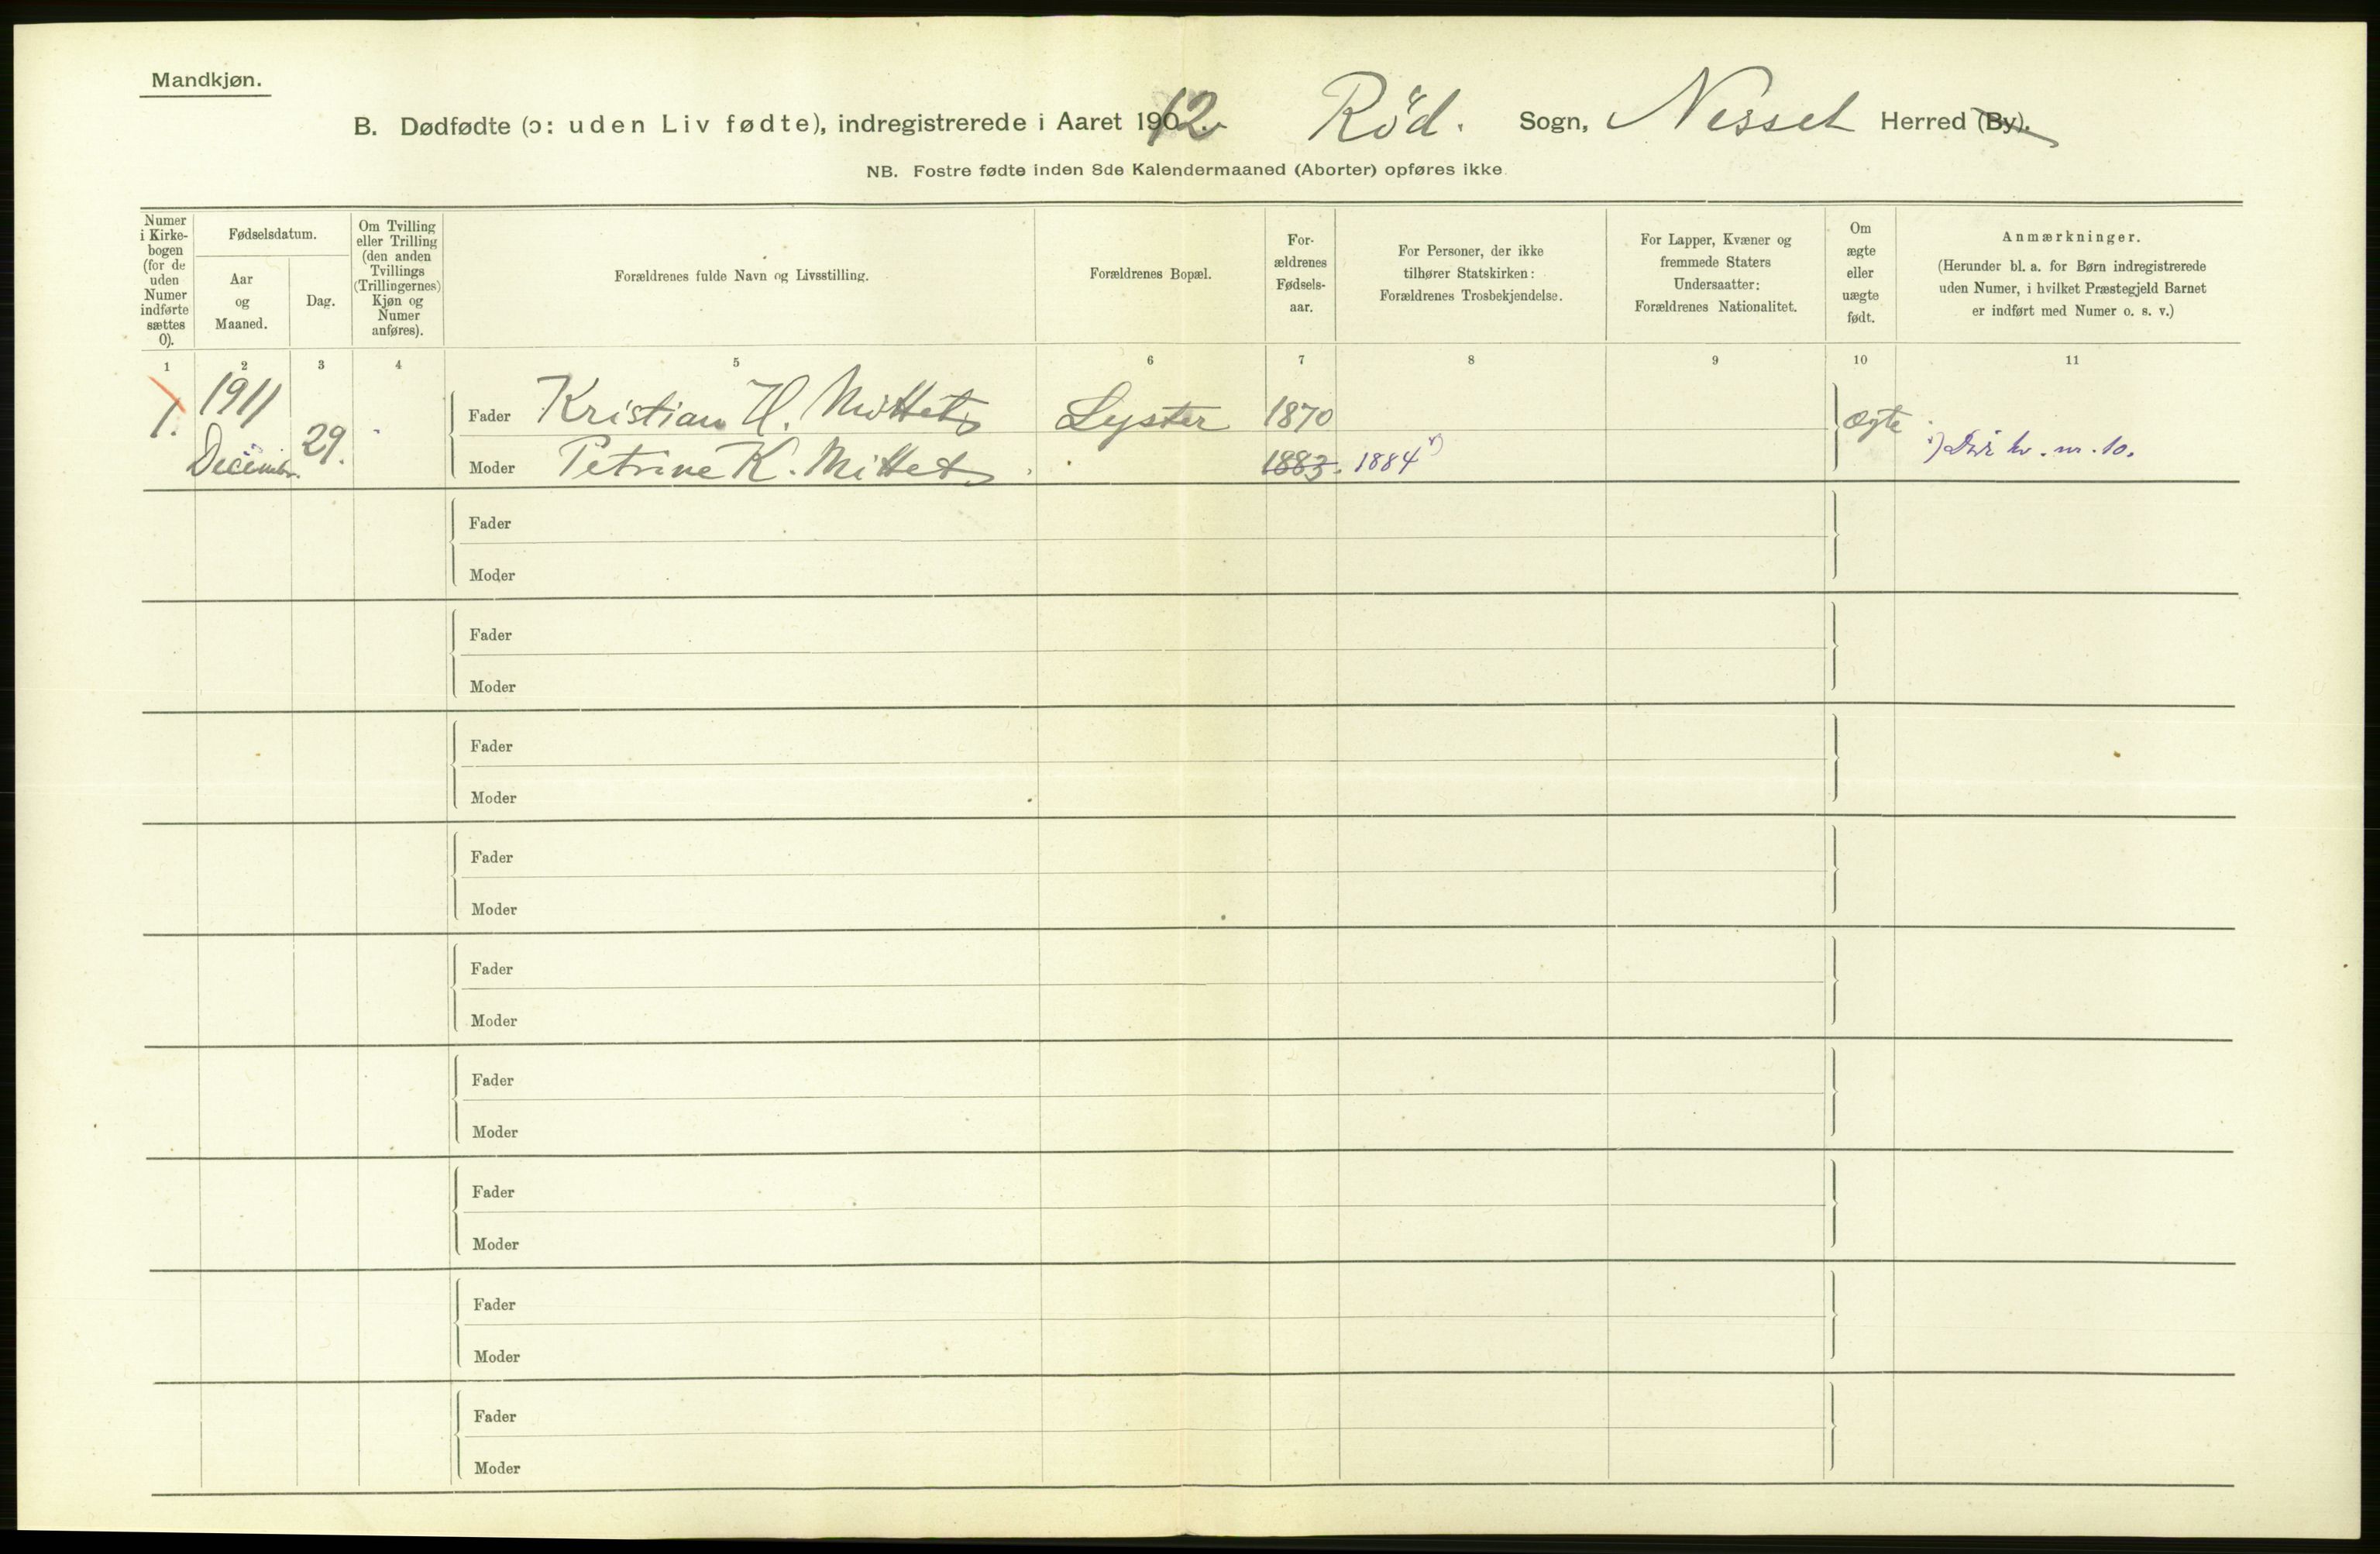 Mandkjøn.
B. Dødfødte (ɔ: uden Liv fødte), indregistrerede i Aaret 1912. Röd. Sogn, Nesset Herred (By).
NB. Fostre fødte inden 8de Kalendermaaned (Aborter) opføres ikke.
Numer
i Kirke-
bogen
(for de
uden
Numer
indførte
sættes
0).
Fødselsdatum.
Aar
og
Maaned.
Dag.
Om Tvilling
eller Trilling
(den anden
Tvillings
(Trillingernes)
Kjøn og
Numer
anføres).
Forældrenes fulde Navn og Livsstilling.
Forældrenes Bopæl.
For-
ældrenes
Fødsels-
aar.
For Personer, der ikke
tilhører Statskirken:
Forældrenes Trosbekjendelse.
For Lapper, Kvæner og
fremmede Staters
Undersaatter:
Forældrenes Nationalitet.
Om
ægte
eller
uægte
født.
Anmærkninger.
(Herunder bl. a. for Børn indregistrerede
uden Numer, i hvilket Præstegjeld Barnet
er indført med Numer o. s. v.)
1 2 3 4 5 6 7 8 9 10 11
1. 1911 Decembr. 29. -
Fader Kristian H. Mittet Lyster 1870 Ægte
Moder Petrine K. Mittet 1883. 1884 nr. 10.
Fader
Moder
Fader
Moder
Fader
Moder
Fader
Moder
Fader
Moder
Fader
Moder
Fader
Moder
Fader
Moder
Fader
Moder